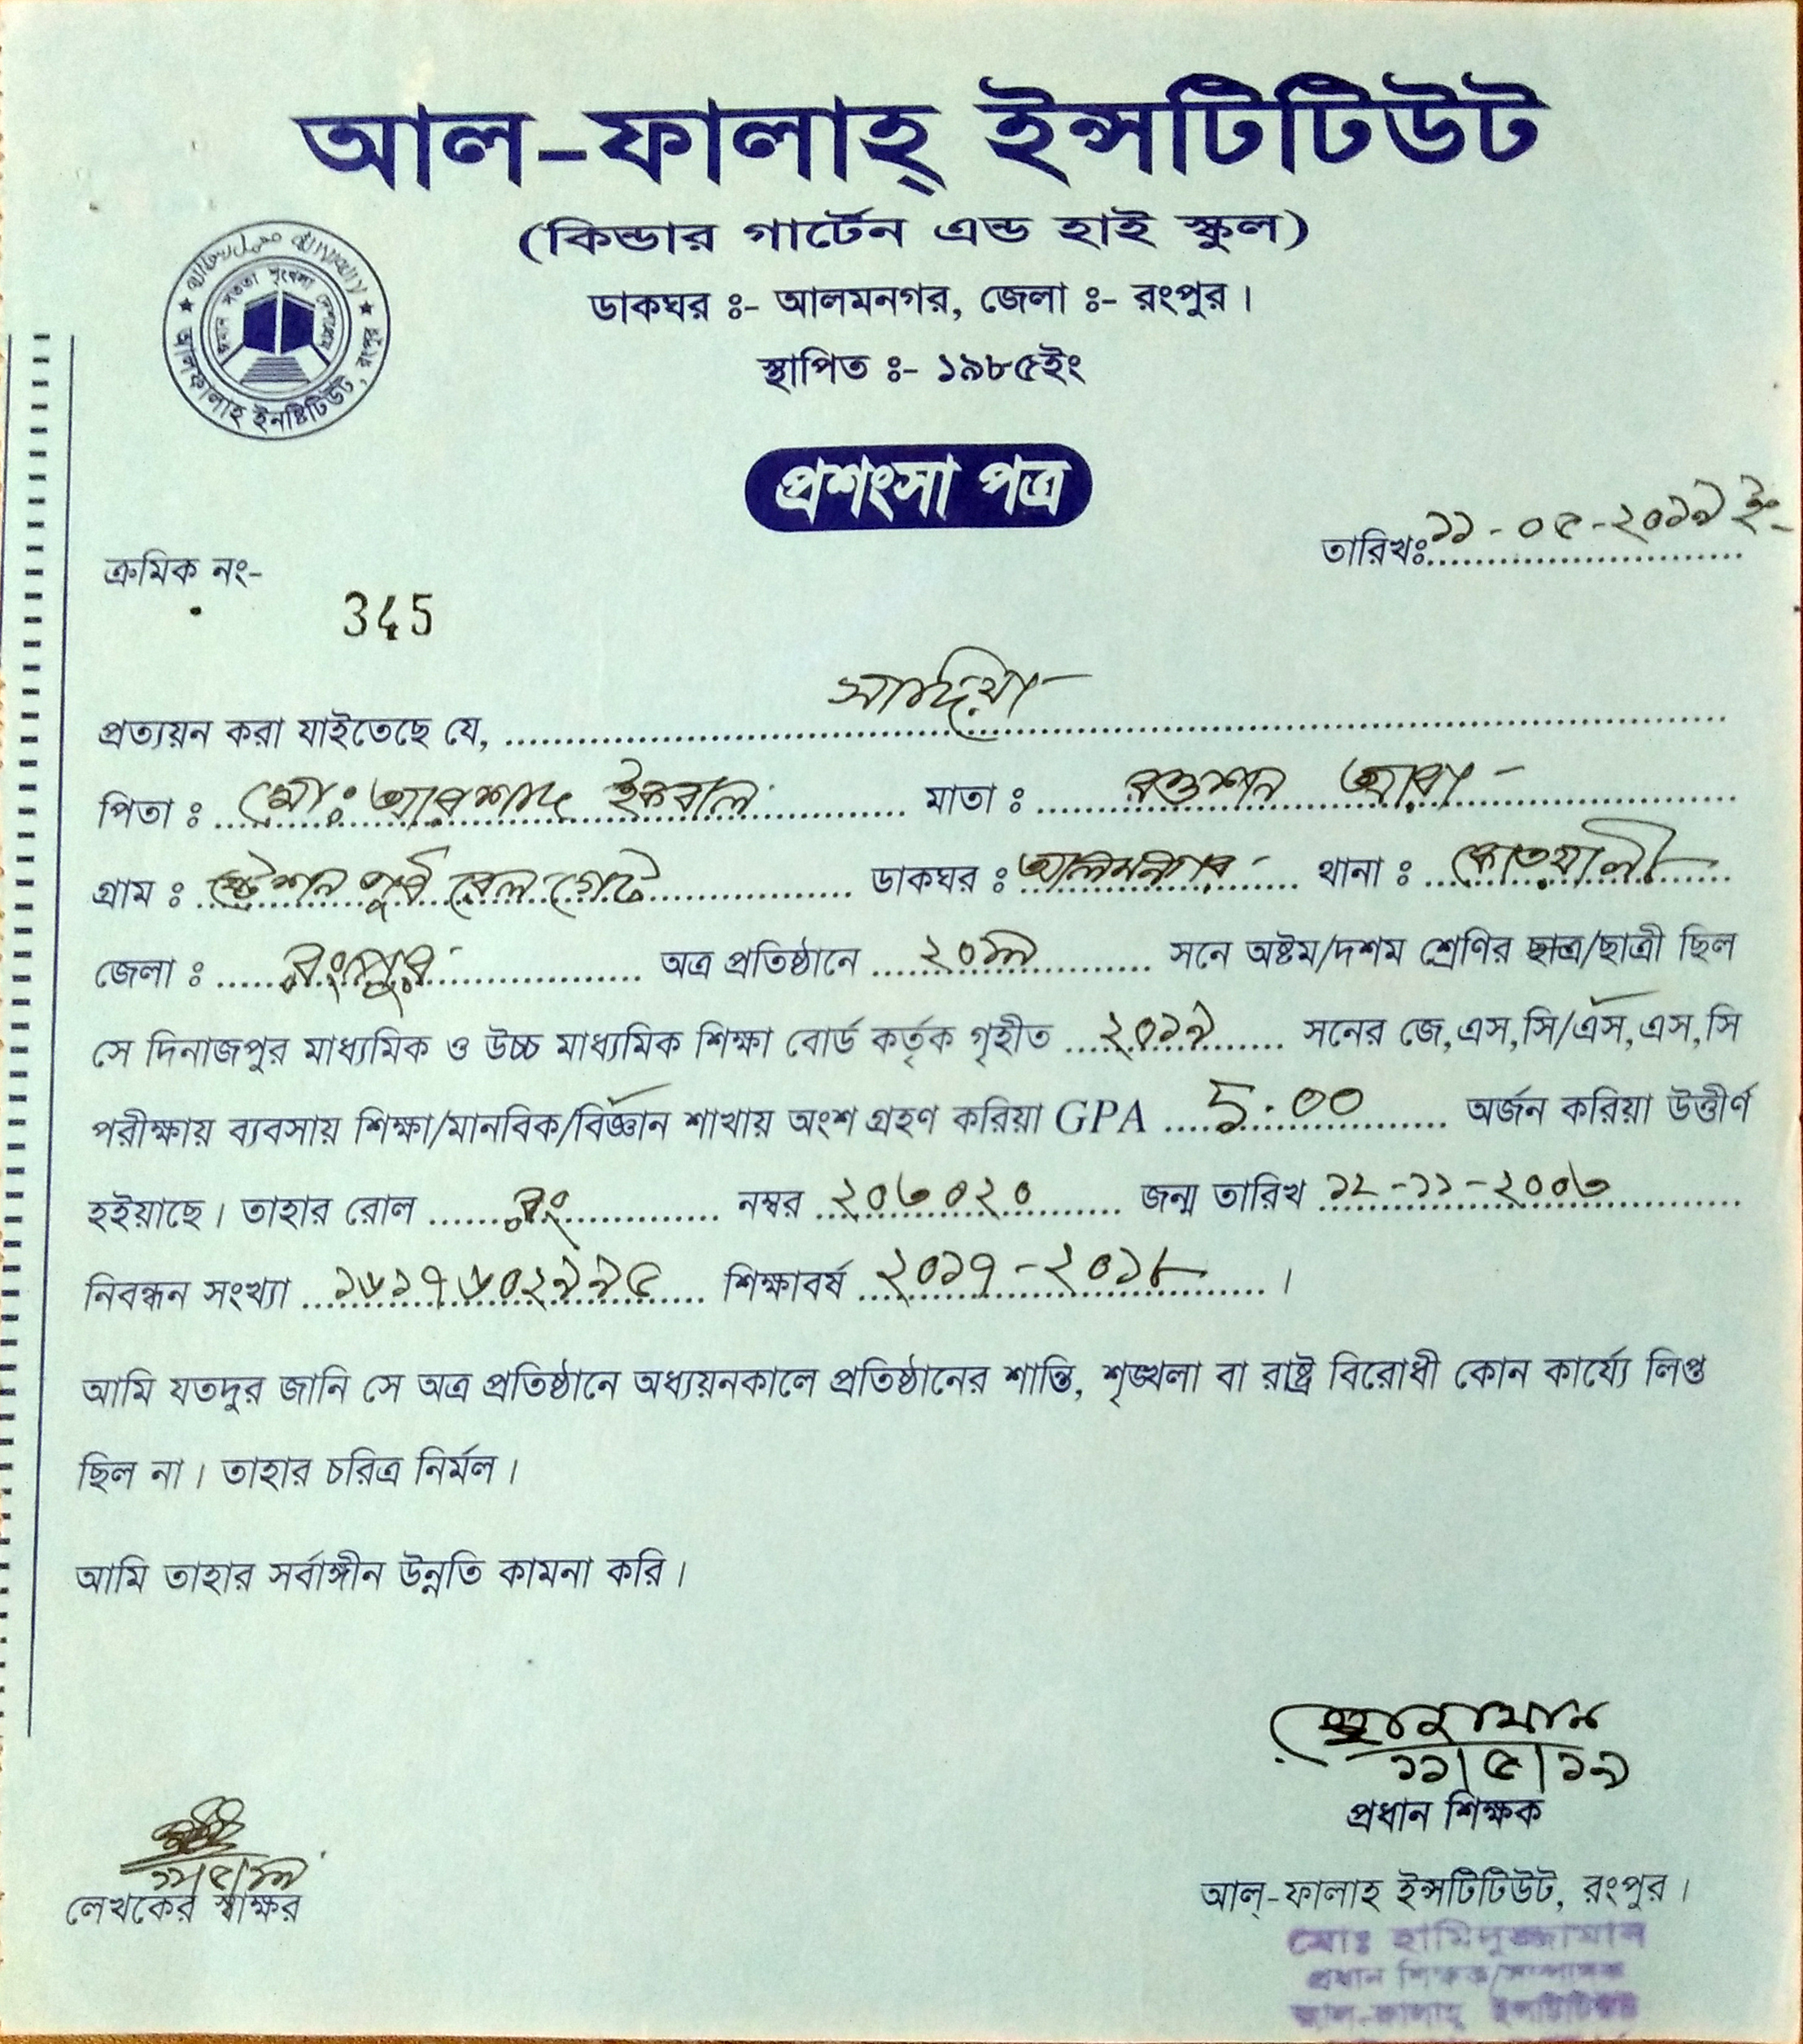 আল-ফালাহ্ ইন্সটিটিউট
(কিন্ডার গার্টেন এন্ড হাই স্কুল)
ডাকঘর ঃ- আলমনগর, জেলা ঃ- রংপুর।
স্থাপিত ঃ- ১৯৮৫ইং
আলফালাহ ইনষ্টিটিউট, রংপুর
প্রশংসা পত্র
তারিখঃ ১১-০৫-২০১৯ ইং
ক্রমিক নং-
345
প্রত্যয়ন করা যাইতেছে যে, সাদিয়া
পিতা ঃ মোঃ আরশাদ ইকবাল মাতা ঃ রওশন আরা
গ্রাম ঃ ষ্টেশন পূর্ব রেল গেট ডাকঘর ঃ আলমনগর থানা ঃ কোতয়ালী
জেলা ঃ রংপুর অত্র প্রতিষ্ঠানে ২০১৯ সনে অষ্টম/দশম শ্রেণির ছাত্র/ছাত্রী ছিল
সে দিনাজপুর মাধ্যমিক ও উচ্চ মাধ্যমিক শিক্ষা বোর্ড কর্তৃক গৃহীত ২০১৯ সনের জে,এস,সি/এস,এস,সি
পরীক্ষায় ব্যবসায় শিক্ষা/মানবিক/বিজ্ঞান শাখায় অংশ গ্রহণ করিয়া GPA 5.00 অর্জন করিয়া উত্তীর্ণ
হইয়াছে। তাহার রোল রং নম্বর ২০৩০২০ জন্ম তারিখ ১২-১১-২০০৩
নিবন্ধন সংখ্যা ১৬১৭৬০২৯৯৫ শিক্ষাবর্ষ ২০১৭-২০১৮ ।
আমি যতদুর জানি সে অত্র প্রতিষ্ঠানে অধ্যয়নকালে প্রতিষ্ঠানের শান্তি, শৃঙ্খলা বা রাষ্ট্র বিরোধী কোন কার্য্যে লিপ্ত
ছিল না। তাহার চরিত্র নির্মল।
আমি তাহার সর্বাঙ্গীন উন্নতি কামনা করি।
১১/৫/১৯
প্রধান শিক্ষক
১১/৫/১৯
লেখকের স্বাক্ষর
আল্-ফালাহ ইন্সটিটিউট, রংপুর।
মোঃ হামিদুজ্জামান
প্রধান শিক্ষক/সম্পাদক
আল-ফালাহ্ ইন্সটিটিউট